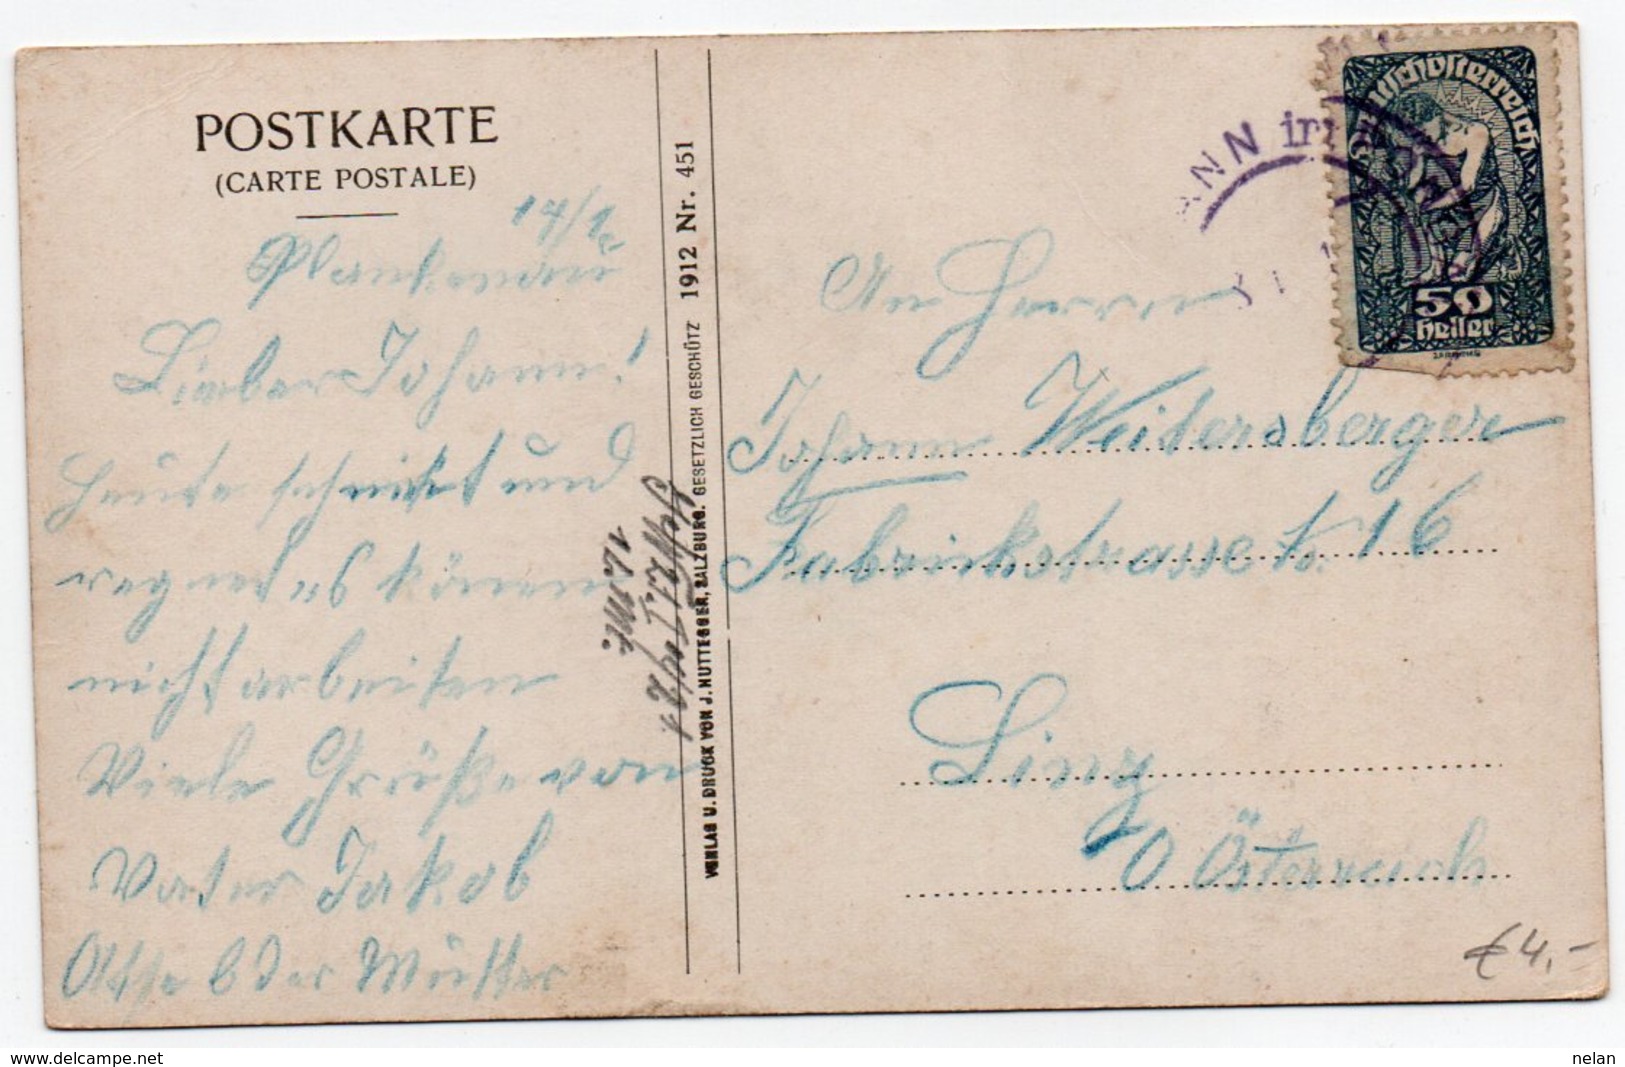 POSTKARTE
(CARTE POSTALE)
Plankenau
Lieber Johann!
Heute schneibt und
regnet es können
nicht arbeiten
Viele Grüße von
Vater Jakob
VERLAG U. DRUCK VON J. HUTTEGGER, SALZBURG. GESETZLICH GESCHÜTZ 1912 Nr. 451
schösterreich
50
heller
An Herrn
Johann Weitersberger
Fabrickstrasse 16
Linz
O Österreich
€4,-
www.delcampe.net
nelan